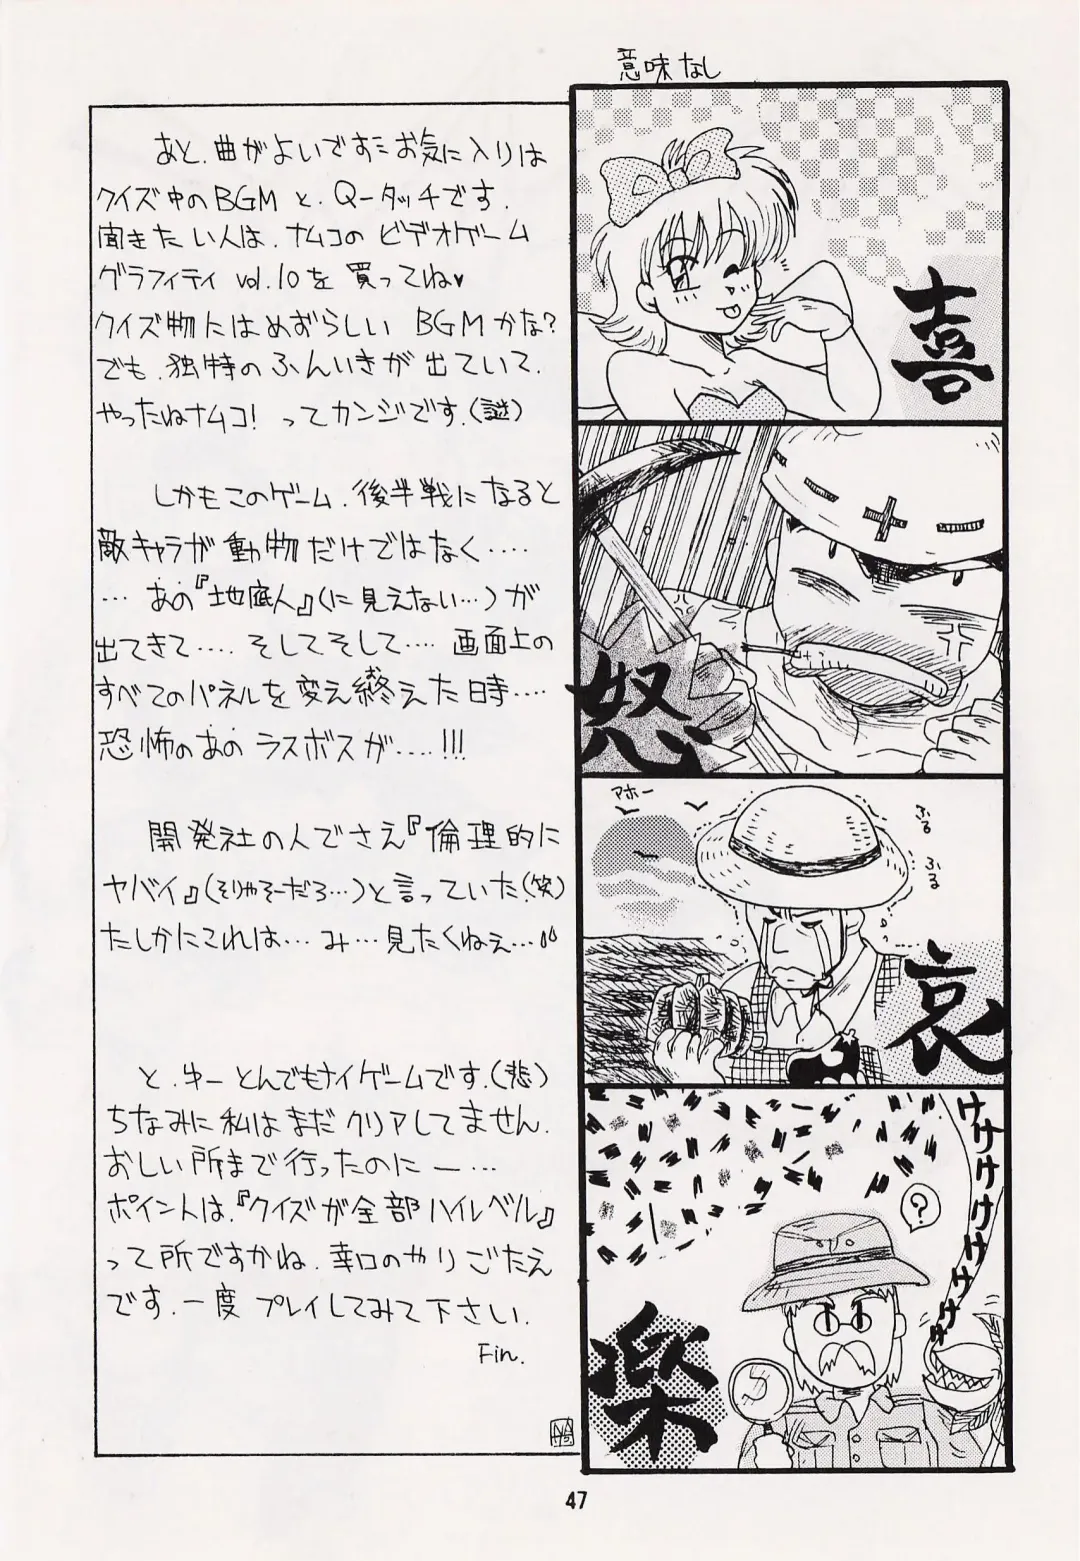 意味なし
あと、曲がよいですミお気に入りは
クイズ中のBGM と、Q-タッチです。
聞きたい人は、ナムコの ビデオゲーム
グラフィティ vol.10を 買ってね♥
クイズ物にはめずらしい BGMかな?
でも、独特のふんいきが出ていて、
やったねナムコ! ってカンジです。(謎)
しかもこのゲーム、後半戦になると
敵キャラが動物だけではなく‥‥
‥あの『地底人』(に見えない…)が
出てきて‥‥ そしてそして‥‥ 画面上の
すべてのパネルを変え終えた時‥‥
恐怖のあの ラスボスが‥‥!!!
開発社の人でさえ『倫理的に
ヤバイ』(そりゃそーだろ…)と言っていた(笑)
たしかにこれは…み…見たくねぇ…
と、まーとんでもナイゲームです。(悲)
ちなみに私はまだクリアしてません。
おしい所まで行ったのにー…
ポイントは、『クイズが全部ハイレベル』
って所ですかね、辛口のやりごたえ
です。一度プレイしてみて下さい。
Fin.
喜
怒
アホー
ふる
ふる
哀
けけけけけけけけ
?
楽
47